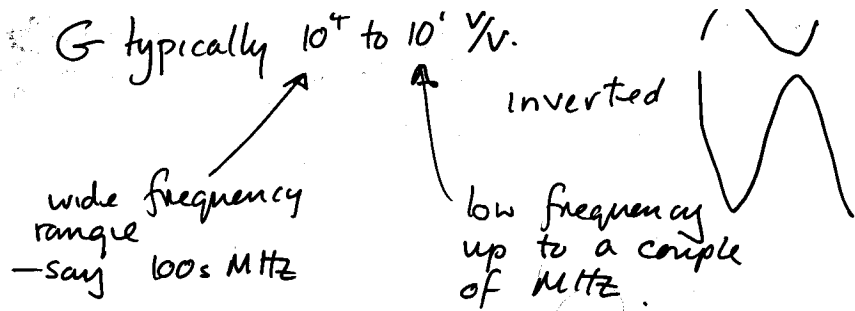 G typically 10⁴ to 10⁶ V/V.
inverted
wide frequency
range
—say 100s MHz
low frequency
up to a couple
of MHz.